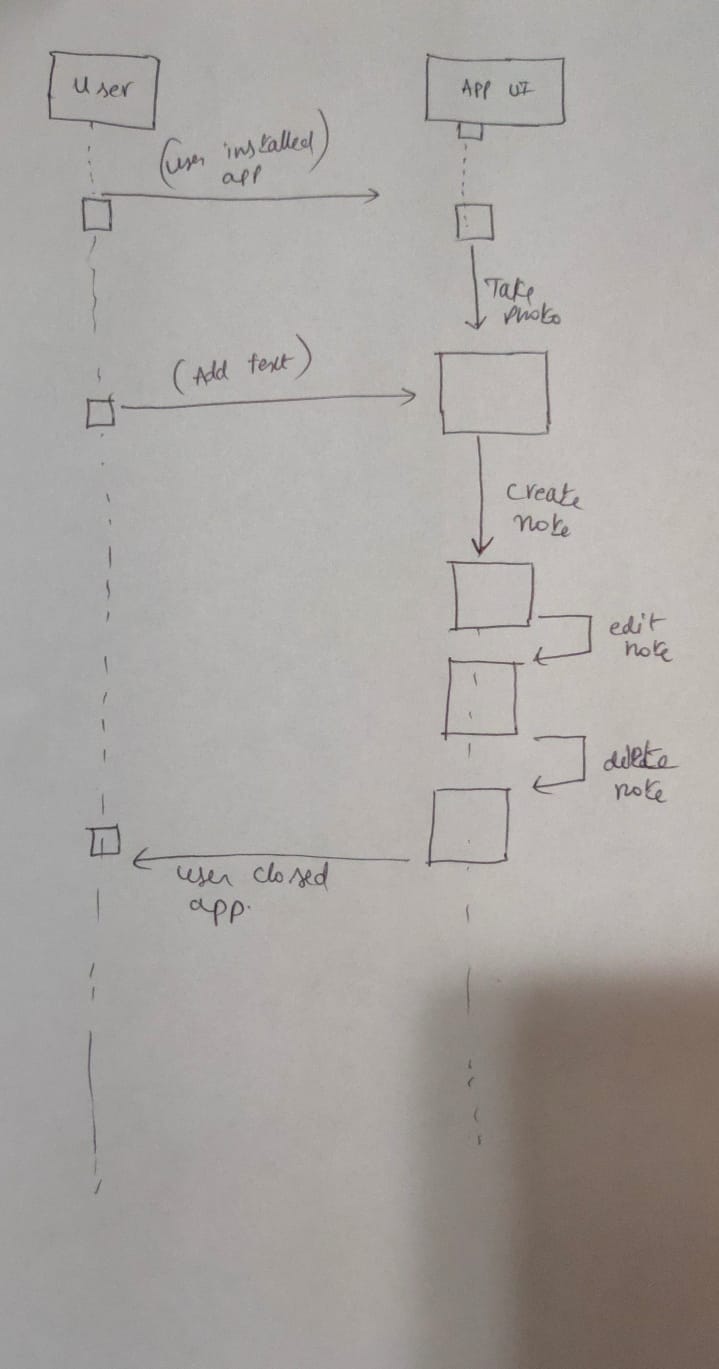 User
APP UI
(user installed)
app
Take
photo
(Add text)
create
note
edit
note
delete
note
user closed
app.